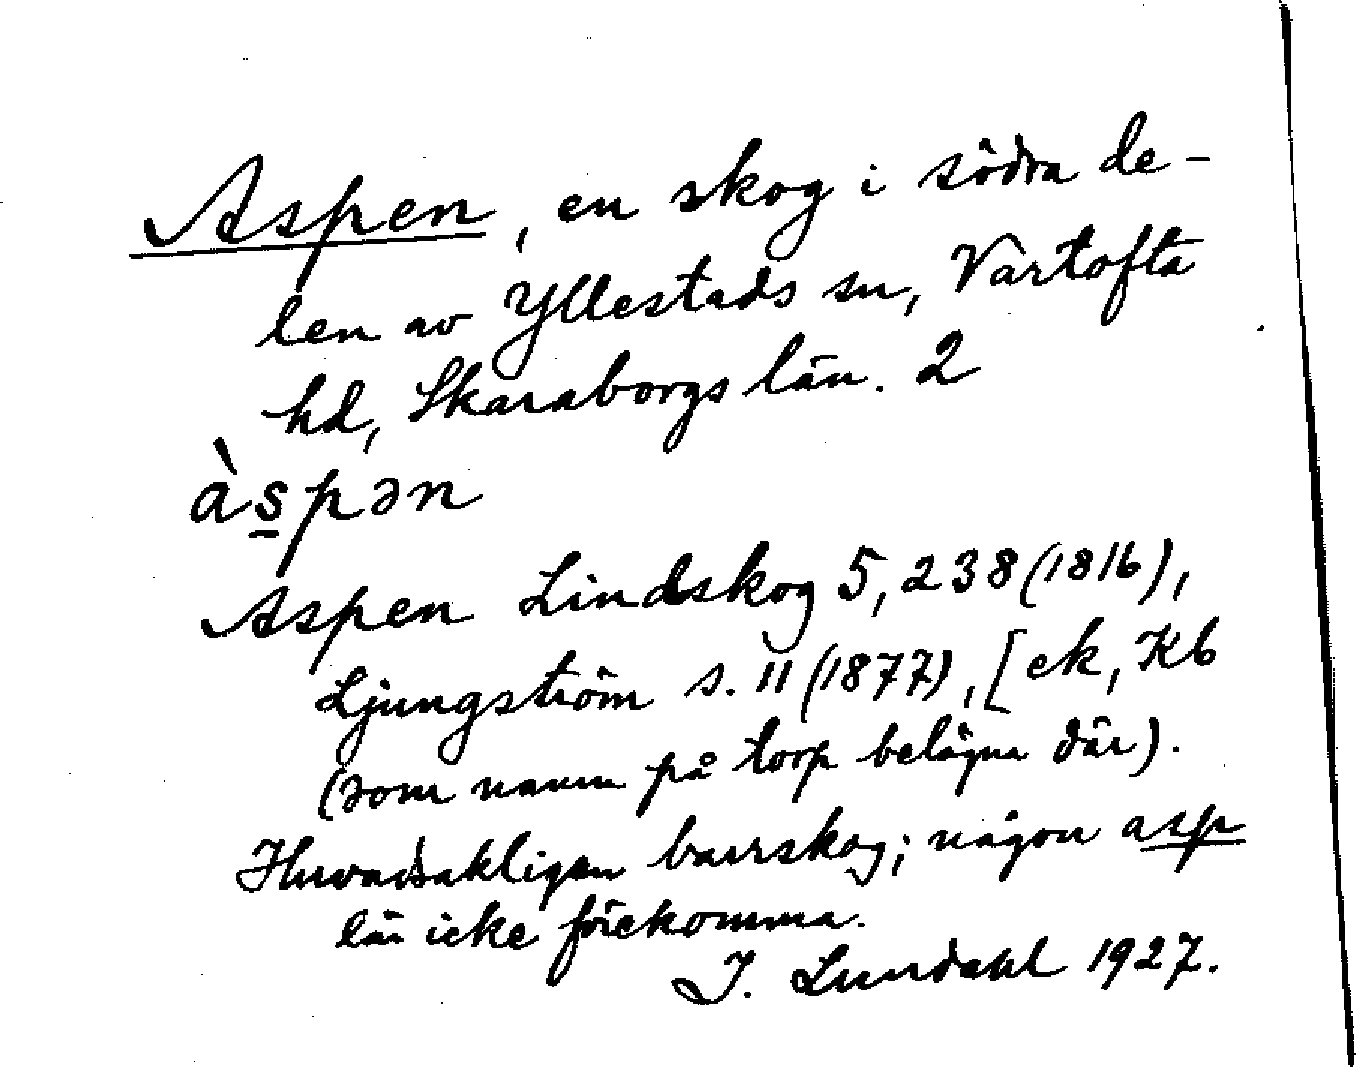 Aspen, en skog i södra de-
len av Yllestads sn, Vartofta
hd, Skaraborgs län. 2
às̲pən
Aspen Lindskog 5, 238 (1816),
Ljungström s. 11 (1877), [ek, Kb
(som namn på torp belägna där).
Huvudsakligen barrskog; någon asp
lär icke förekomma.
I. Lundahl 1927.